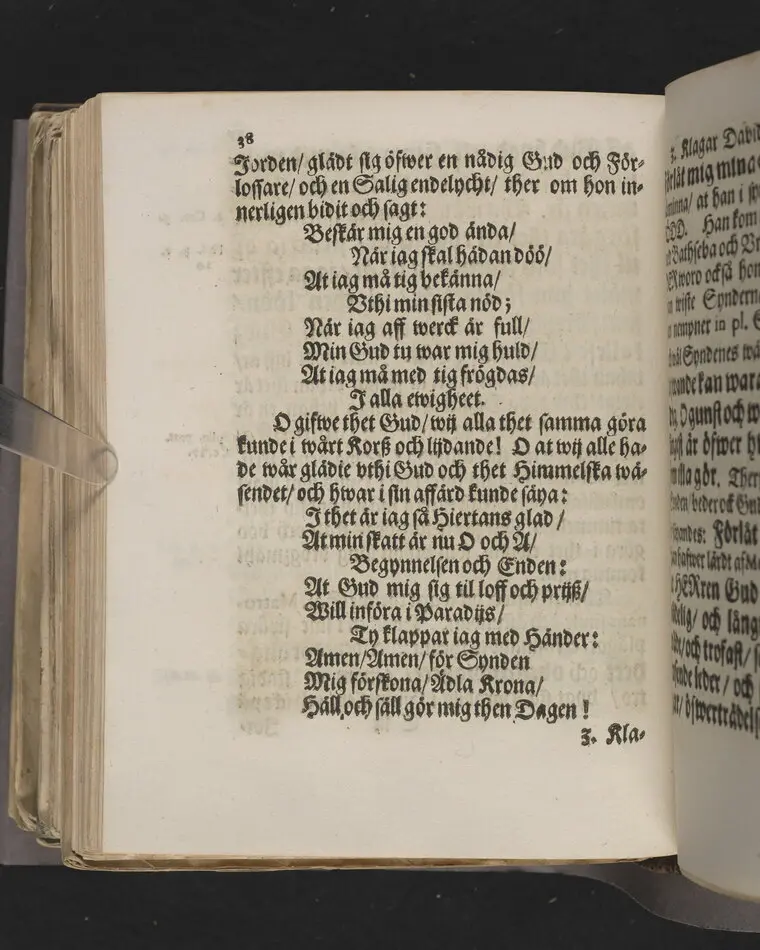 38
Jorden/ glädt sig öfwer en nådig Gud och För-
lossare/ och en Salig endelycht/ ther om hon in-
nerligen bidit och sagt:
Beskär mig en god ända/
När iag skal hädan döö/
At iag må tig bekänna/
Vthi min sista nöd;
När iag aff werck är full/
Min Gud tu war mig huld/
At iag må med tig frögdas/
I alla ewigheet.
O gifwe thet Gud/ wij alla thet samma göra
kunde i wårt Korß och lijdande! O at wij alle ha-
de wår glädie vthi Gud och thet Himmelska wä-
sendet/ och hwar i sin affärd kunde säya:
I thet är iag så Hiertans glad/
At min skatt är nu O och A/
Begynnelsen och Enden:
At Gud mig sig til loff och prijß/
Will införa i Paradijs/
Ty klappar iag med Händer:
Amen/Amen/ för Synden
Mig förskona/Ädla Krona/
Häll och säll gör mig then Dagen!
3. Kla-
3. Klagar David
mig mina
at han i
Han kom
Bathseba och
också
wiste Syndern
nempner in pl.
Syndenes
kan wara
Ogunst och
är öfwer
gör. Ther
beder ock
Förlåt
hafwer lärdt af
HERren Gud
och lång
och trofast/
leder/ och